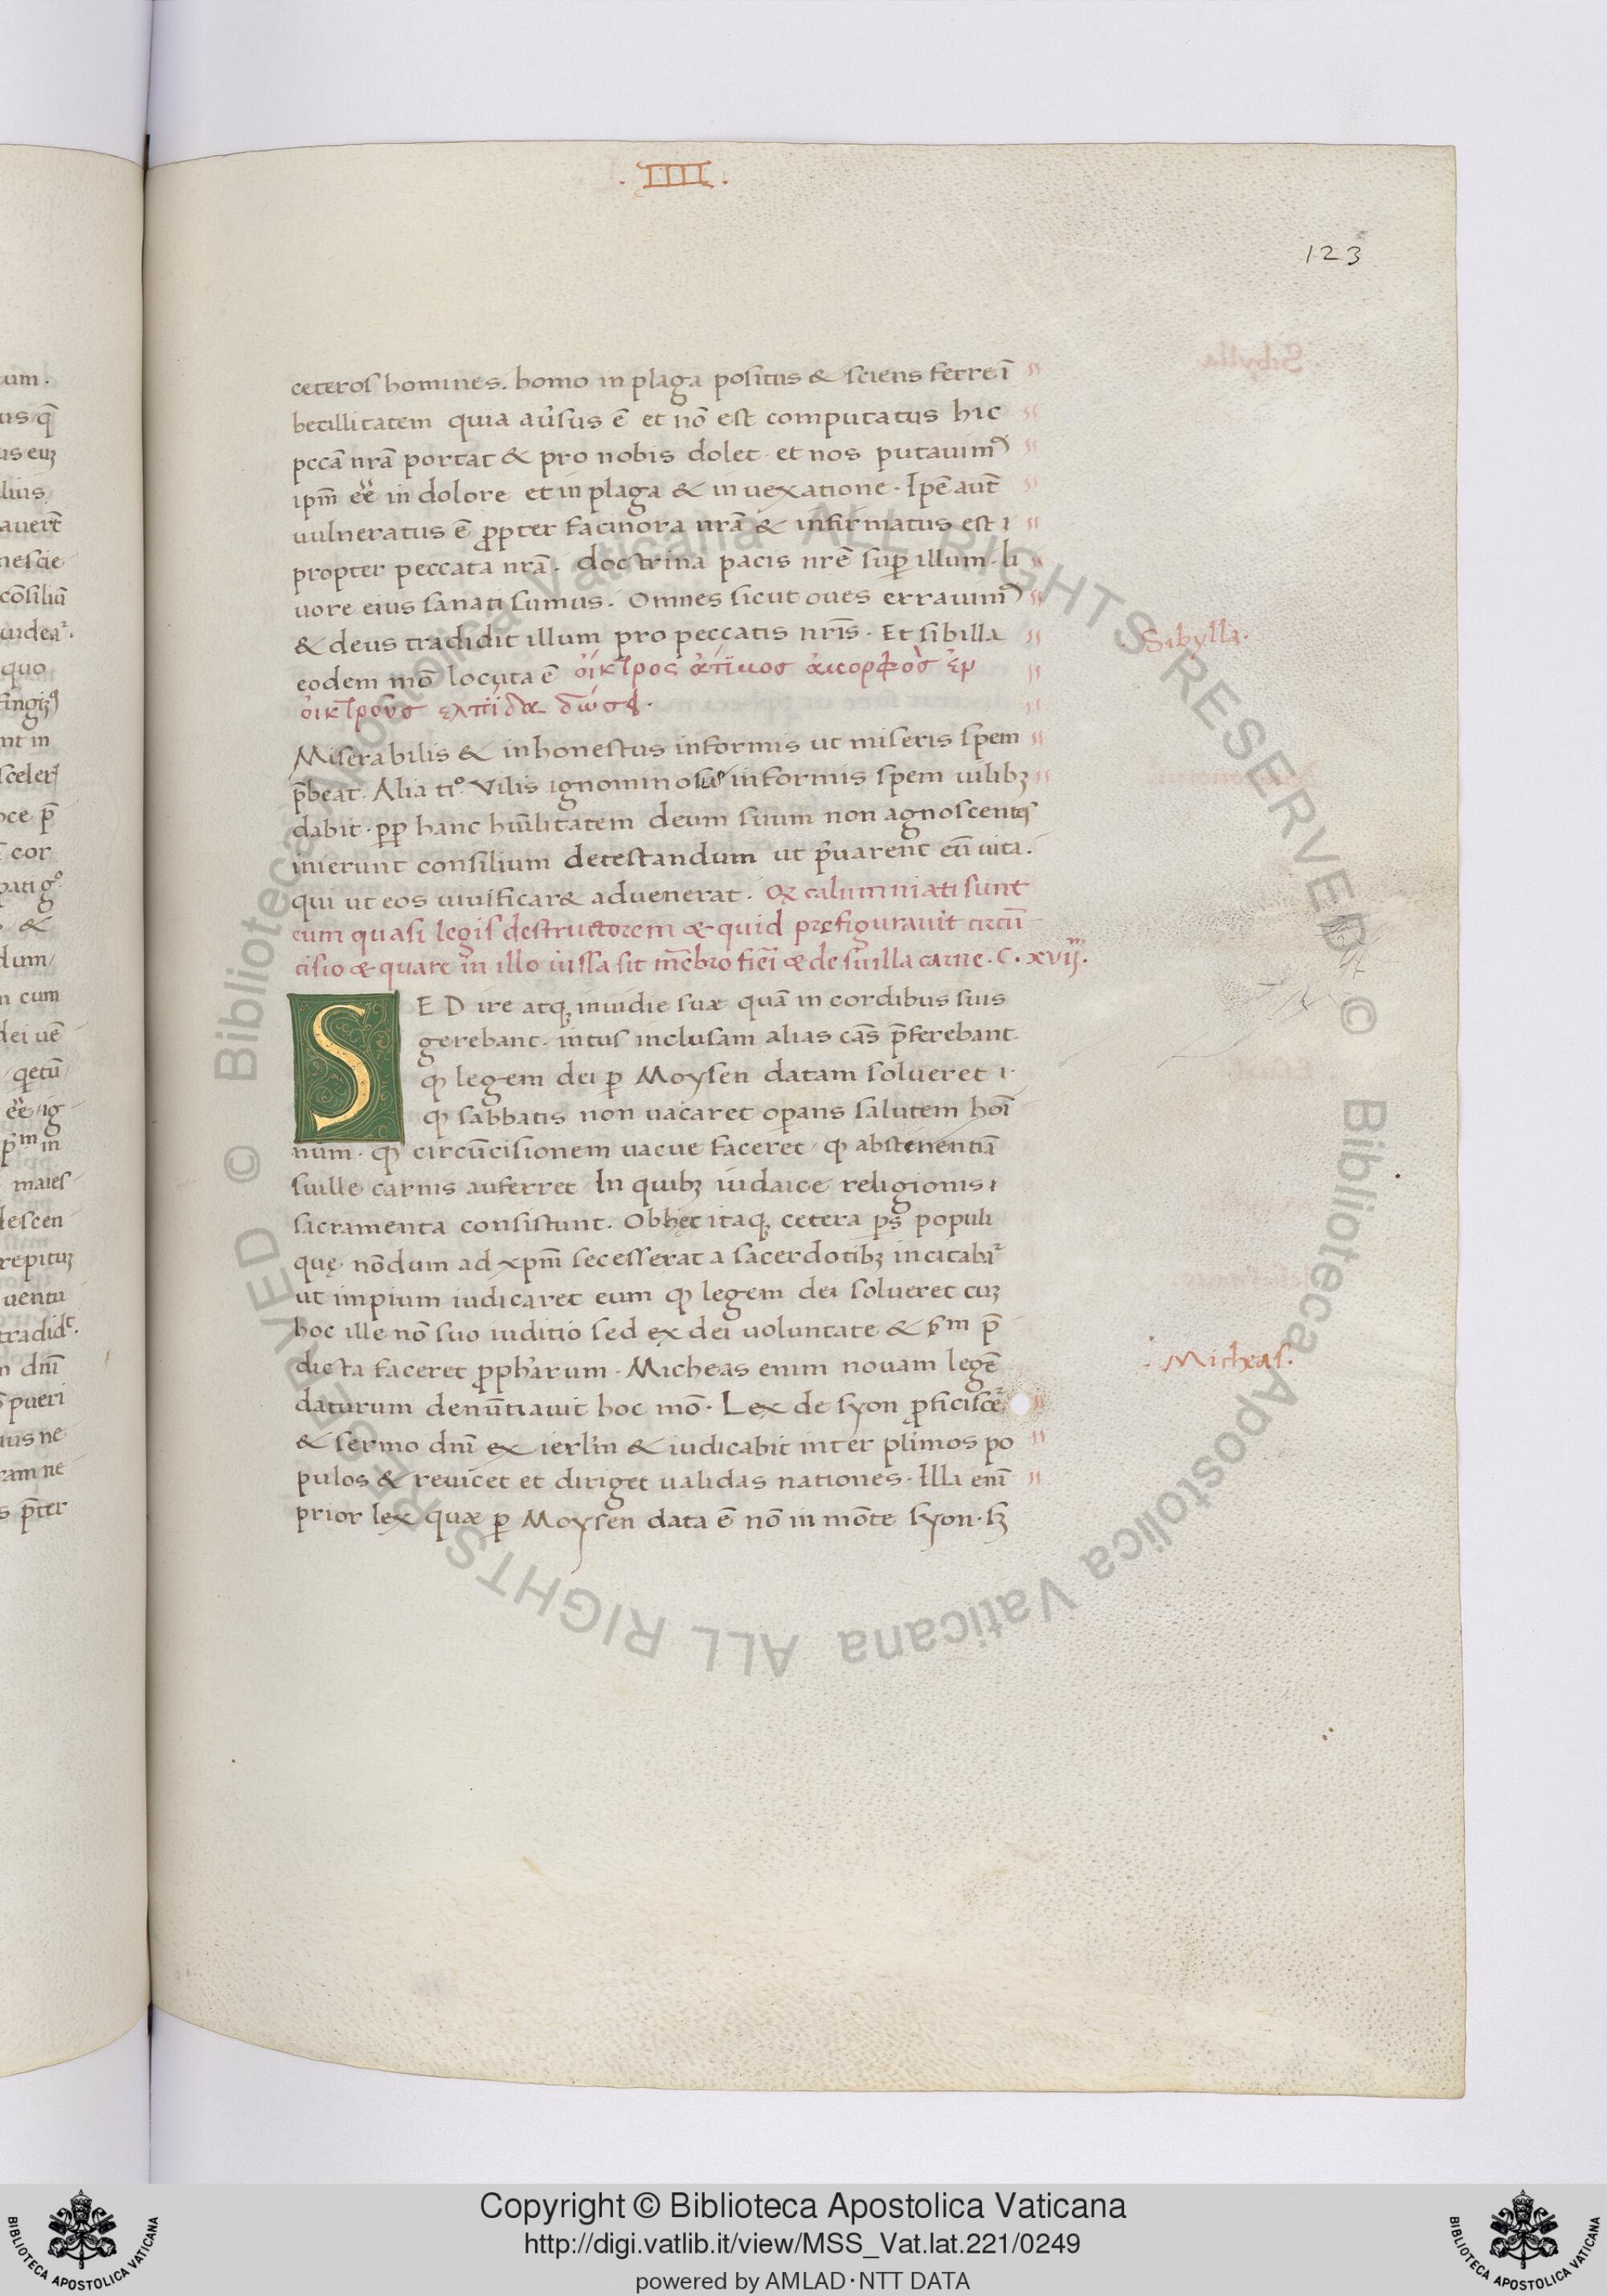 . IIII .
123
ceteros homines. homo in plaga positus & sciens ferre ī
becillitatem quia aūsus ē et nō est computatus hic
pccā nrā portat & pro nobis dolet et nos putauimꝰ
ipm̄ ēē in dolore et in plaga & in uexatione. Ipē aut̄
uulneratus ē ꝓpter facinora nrā & infirmatus est ı
propter peccata nrā. doctrina pacis nrē suꝑ illum. li
uore eius sanati sumus. Omnes sicut oues errauimꝰ
& deus tradidit illum pro peccatis nrīs. Et sibilla
Sibylla.
eodem mō locuta ē οἰκτρος ἀτϊμος ἀμορφὸσ ἐρ
οικτρουσ ελπϊδα δώσει.
Miserabilis & inhonestus informis ut miseris spem
p̄beat. Alia tͥo. Vilis ignominosus informis spem uilibꝫ
dabit. ꝓꝑ hanc hūilitatem deum suum non agnoscentes
inierunt consilium detestandum ut p̄uarent eū uita.
qui ut eos uiuificaræ aduenerat. Qꝫ calumniati sunt
eum quasi legis destructorem & quid prefigurauit circū
cisio & quare in illo iussa sit mēbro fieī & de suilla carne. C. xviij.
SED ire atqꝫ inuidie suæ quā in cordibus suis
gerebant. intus inclusam alias cās p̄ferebant.
ꝙ legem dei ꝑ Moysen datam solueret ı.
ꝙ sabbatis non uacaret oꝑans salutem hoī
num. ꝙ circūcisionem uacue faceret ꝙ abstenentiā
suille carnis auferret In quibꝫ iudaice religionis ı
sacramenta consistunt. Ob hęc itaqꝫ cetera p̄s populi
quę nōdum ad xpm̄ secesserat a sacerdotibꝫ incitabaᷣ
ut impium iudicaret eum ꝙ legem dei solueret cuꝫ
hoc ille nō suo iuditio sed ex dei uoluntate & s̄m p̄
dicta faceret ꝓpharum. Micheas enim nouam legē
Micheas.
daturum denūtiauit hoc mō. Lex de syon ꝓficiscēᷣ
& sermo dnī ex ierlm̄ & iudicabit inter plīmos po
pulos & reuicet et diriget ualidas nationes. Illa enī
prior lex quæ ꝑ Moysen data ē nō in mōte syon. sꝫ
Copyright © Biblioteca Apostolica Vaticana
http://digi.vatlib.it/view/MSS_Vat.lat.221/0249
powered by AMLAD·NTT DATA
BIBLIOTECA APOSTOLICA VATICANA
BIBLIOTECA APOSTOLICA VATICANA
© Biblioteca Apostolica Vaticana ALL RIGHTS RESERVED © Biblioteca Apostolica Vaticana ALL RIGHTS RESERVED